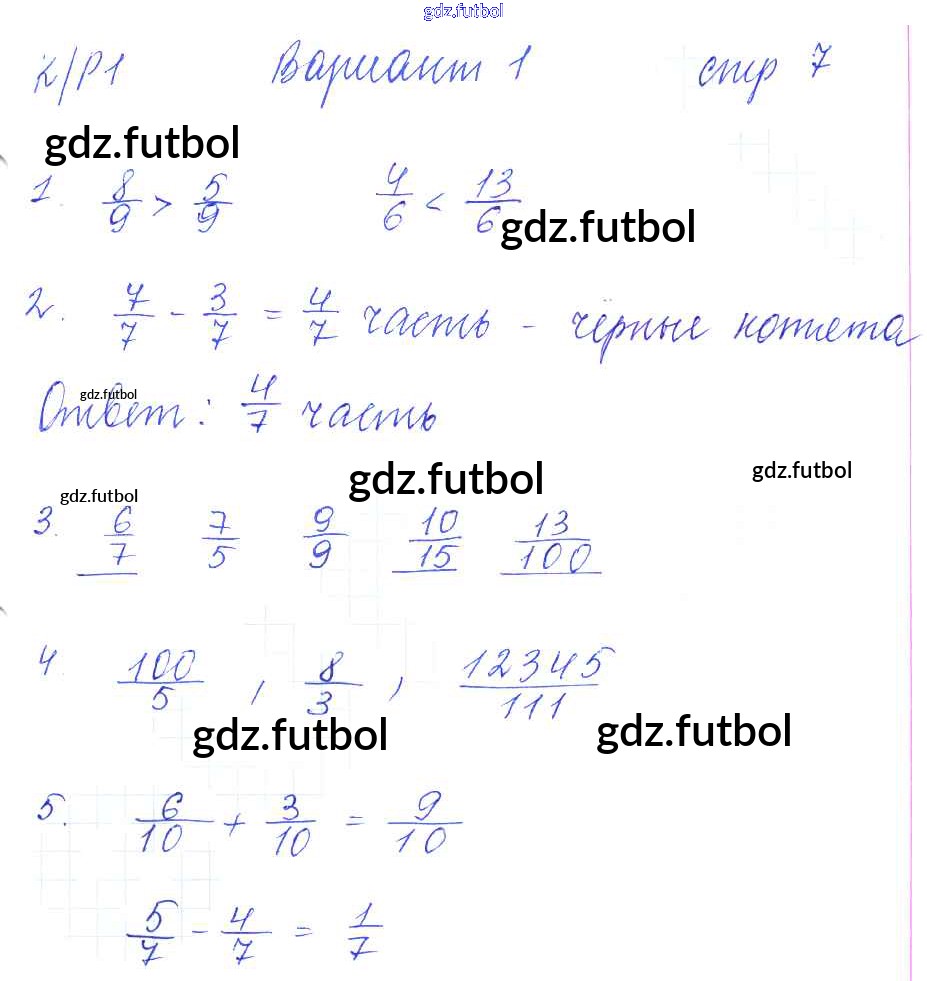 gdz.futbol
К/Р1 Вариант 1 стр 7
gdz.futbol
1. 8/9 > 5/9 4/6 < 13/6
gdz.futbol
2. 7/7 - 3/7 = 4/7 часть - чёрные котята
gdz.futbol
Ответ: 4/7 часть
gdz.futbol gdz.futbol
gdz.futbol
3. 6/7 7/5 9/9 10/15 13/100
4. 100/5 , 8/3 , 12345/111
gdz.futbol gdz.futbol
5. 6/10 + 3/10 = 9/10
5/7 - 4/7 = 1/7